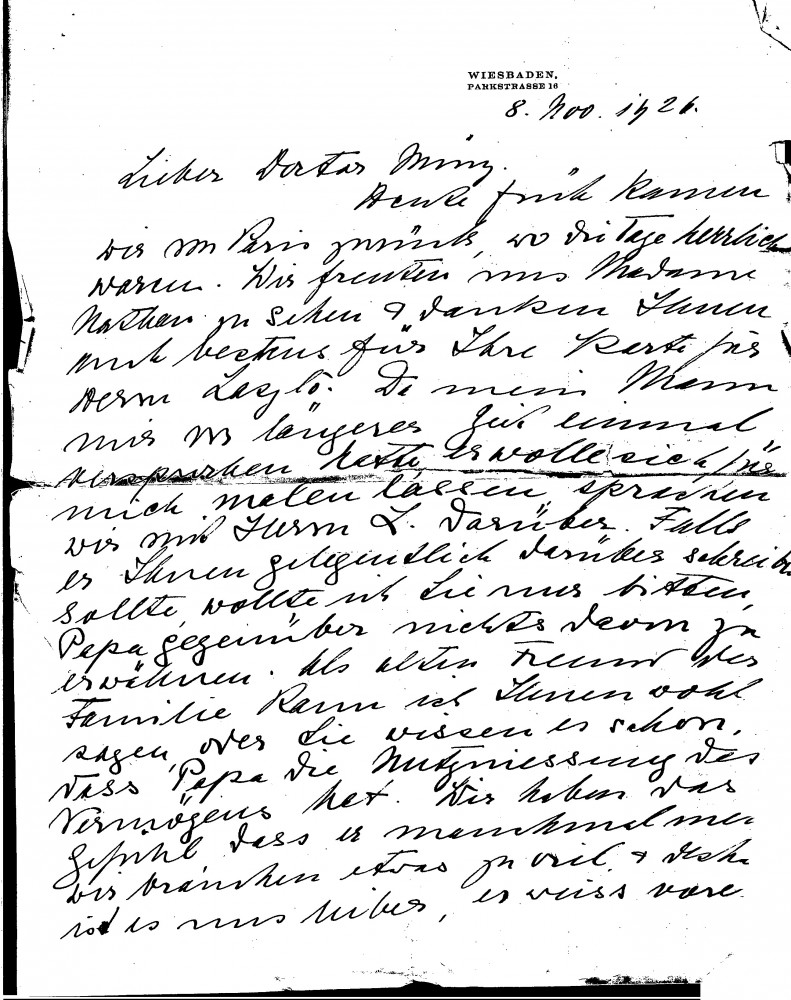 WIESBADEN,
PARKSTRASSE 16
8. Nov. 1926.
Lieber Doctor Münz.
Heute früh kamen
wir von Paris zurück, wo die Tage herrlich
waren. Wir freuten uns Madame
Nathan zu sehen & danken Ihnen
auch bestens für Ihre Karte für
Herrn László. Da mein Mann
mir vor längerer Zeit einmal
versprochen hatte, er wolle sich für
mich malen lassen sprachen
wir mit Herrn L. darüber. Falls
er Ihnen gelegentlich darüber schreiben
sollte, wollte ich Sie nur bitten,
Papa gegenüber nichts davon zu
erwähnen. Als alten Freund der
Familie kann ich Ihnen wohl
sagen, oder Sie wissen es schon,
dass Papa die Nutzniessung des
Vermögens hat. Wir haben das
Gefühl dass er manchmal
wir brauchen etwas zu viel &
ist es uns lieber, er weiss